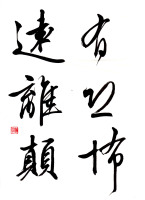 有恐怖
遠離顛